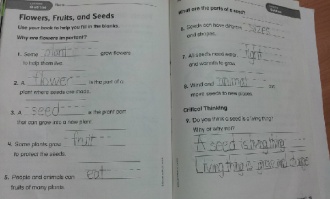 Flowers, Fruits, and Seeds
Use your book to help you fill in the blanks.
Why are flowers important?
1. Some plant grow flowers
to help them live.
2. A flower is the part of a
plant where seeds are made.
3. A seed is the plant part
that can grow into a new plant.
4. Some plants grow fruit
to protect the seeds.
5. People and animals can eat
fruits of many plants.
What are the parts of a seed?
6. Seeds can have different
and shapes.
7. All seeds need water, light
and warmth to grow.
8. Wind and animal can
move seeds to new places.
Critical Thinking
9. Do you think a seed is a living thing?
Why or why not?
A seed is living thing
Living thing is grow and change